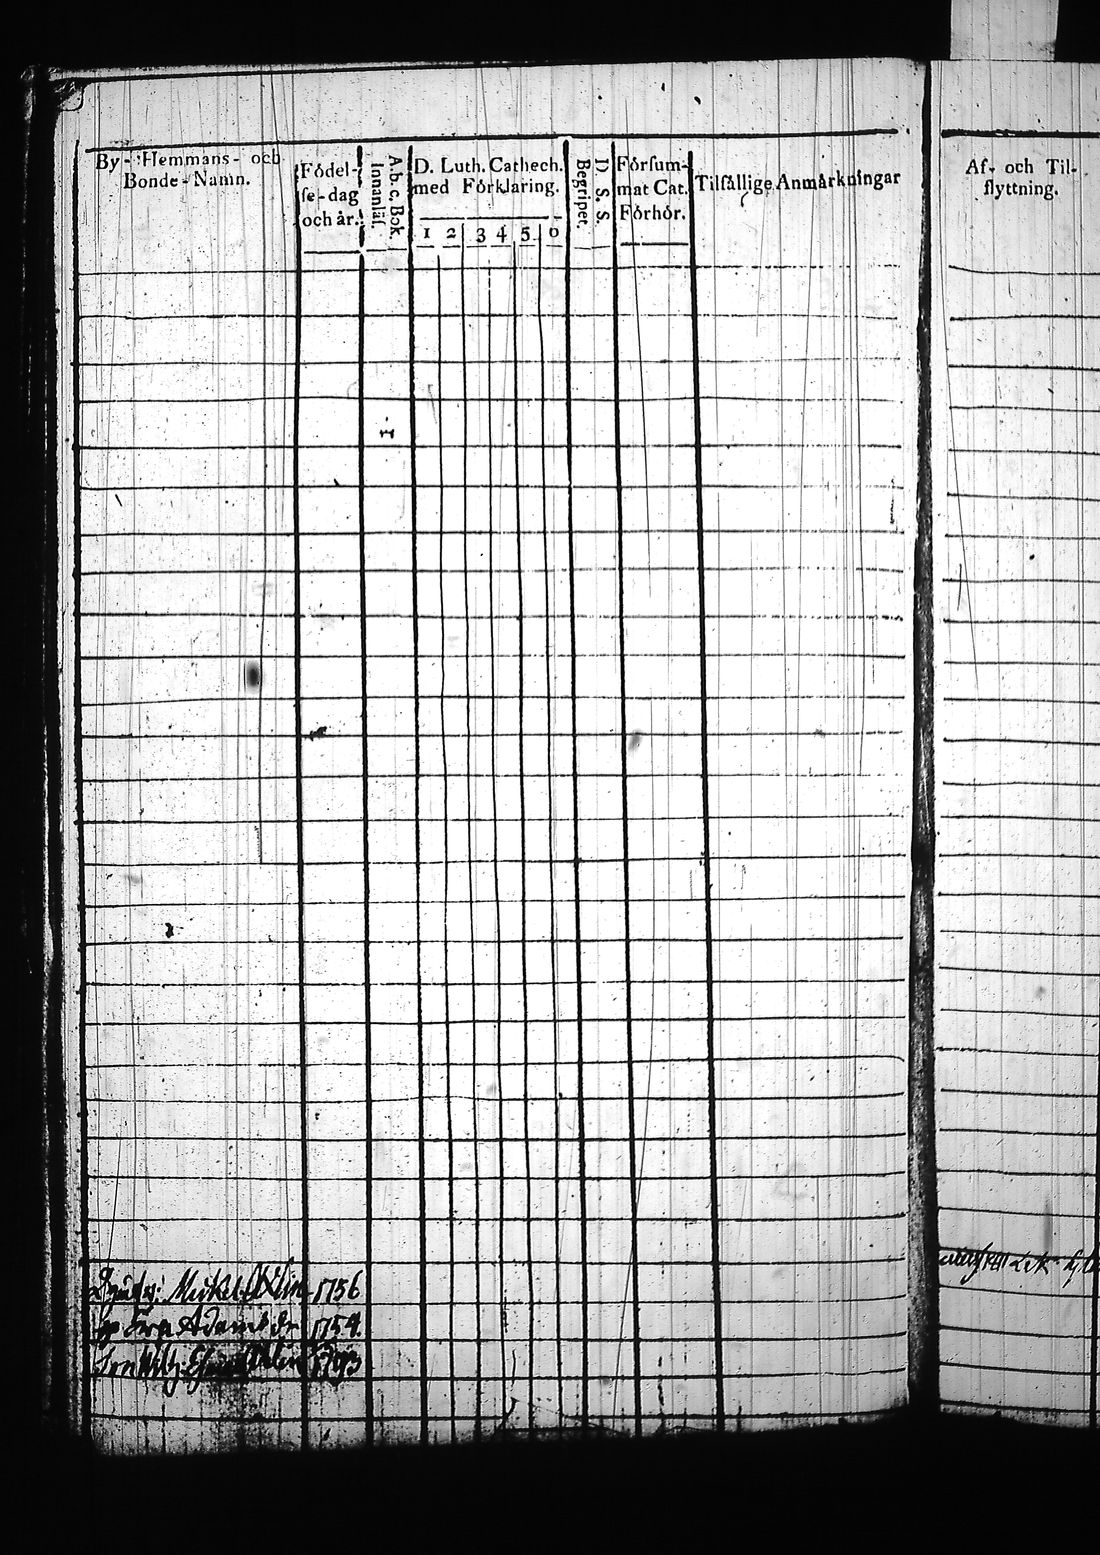 By- Hemmans- och
Bonde-Namn.
Födel-
se-dag
och år.
A.b.c. Bok
Innanläs.
D. Luth. Cathech.
med Förklaring.
1 2 3 4 5 6
D. S. S.
Begripet.
Försum-
mat Cat.
Förhör.
Tilfällige Anmärkningar
Michel 1756
Adams dr 1754
Af- och Til-
flyttning.